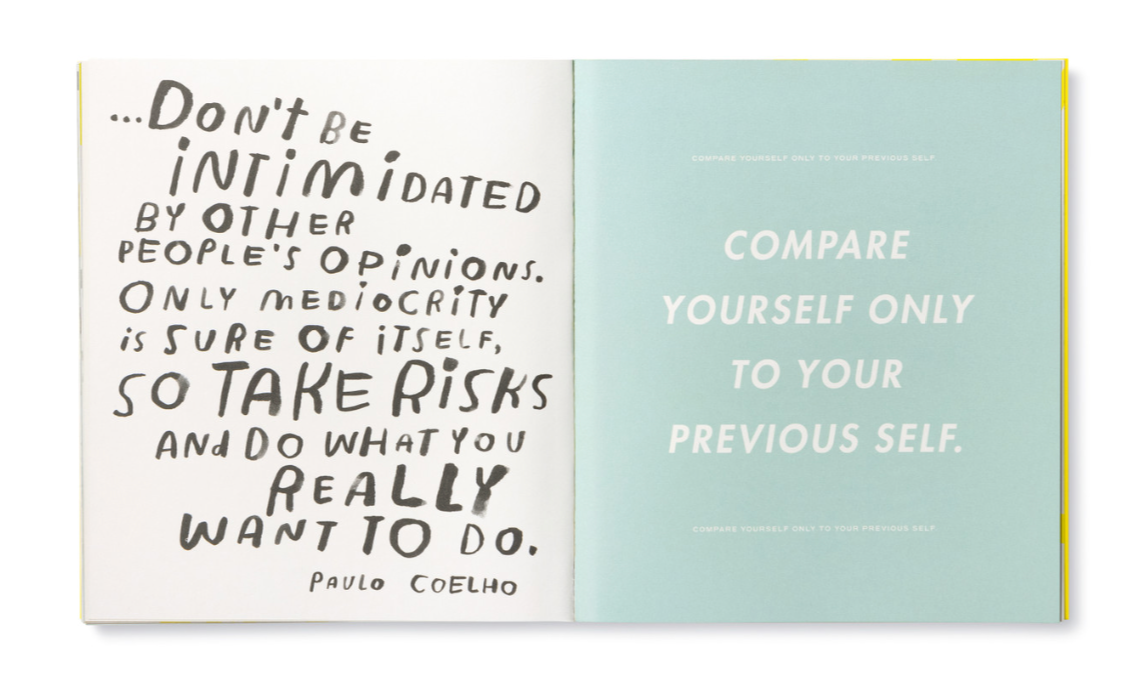 ...DON'T BE
INTIMIDATED
BY OTHER
PEOPLE'S OPINIONS.
ONLY MEDIOCRITY
is SURE OF iTSELF,
SO TAKE RISKS
ANd DO WHAT YOU
REALLY
WANT TO DO.
PAULO COELHO
COMPARE YOURSELF ONLY TO YOUR PREVIOUS SELF
COMPARE
YOURSELF ONLY
TO YOUR
PREVIOUS SELF.
COMPARE YOURSELF ONLY TO YOUR PREVIOUS SELF